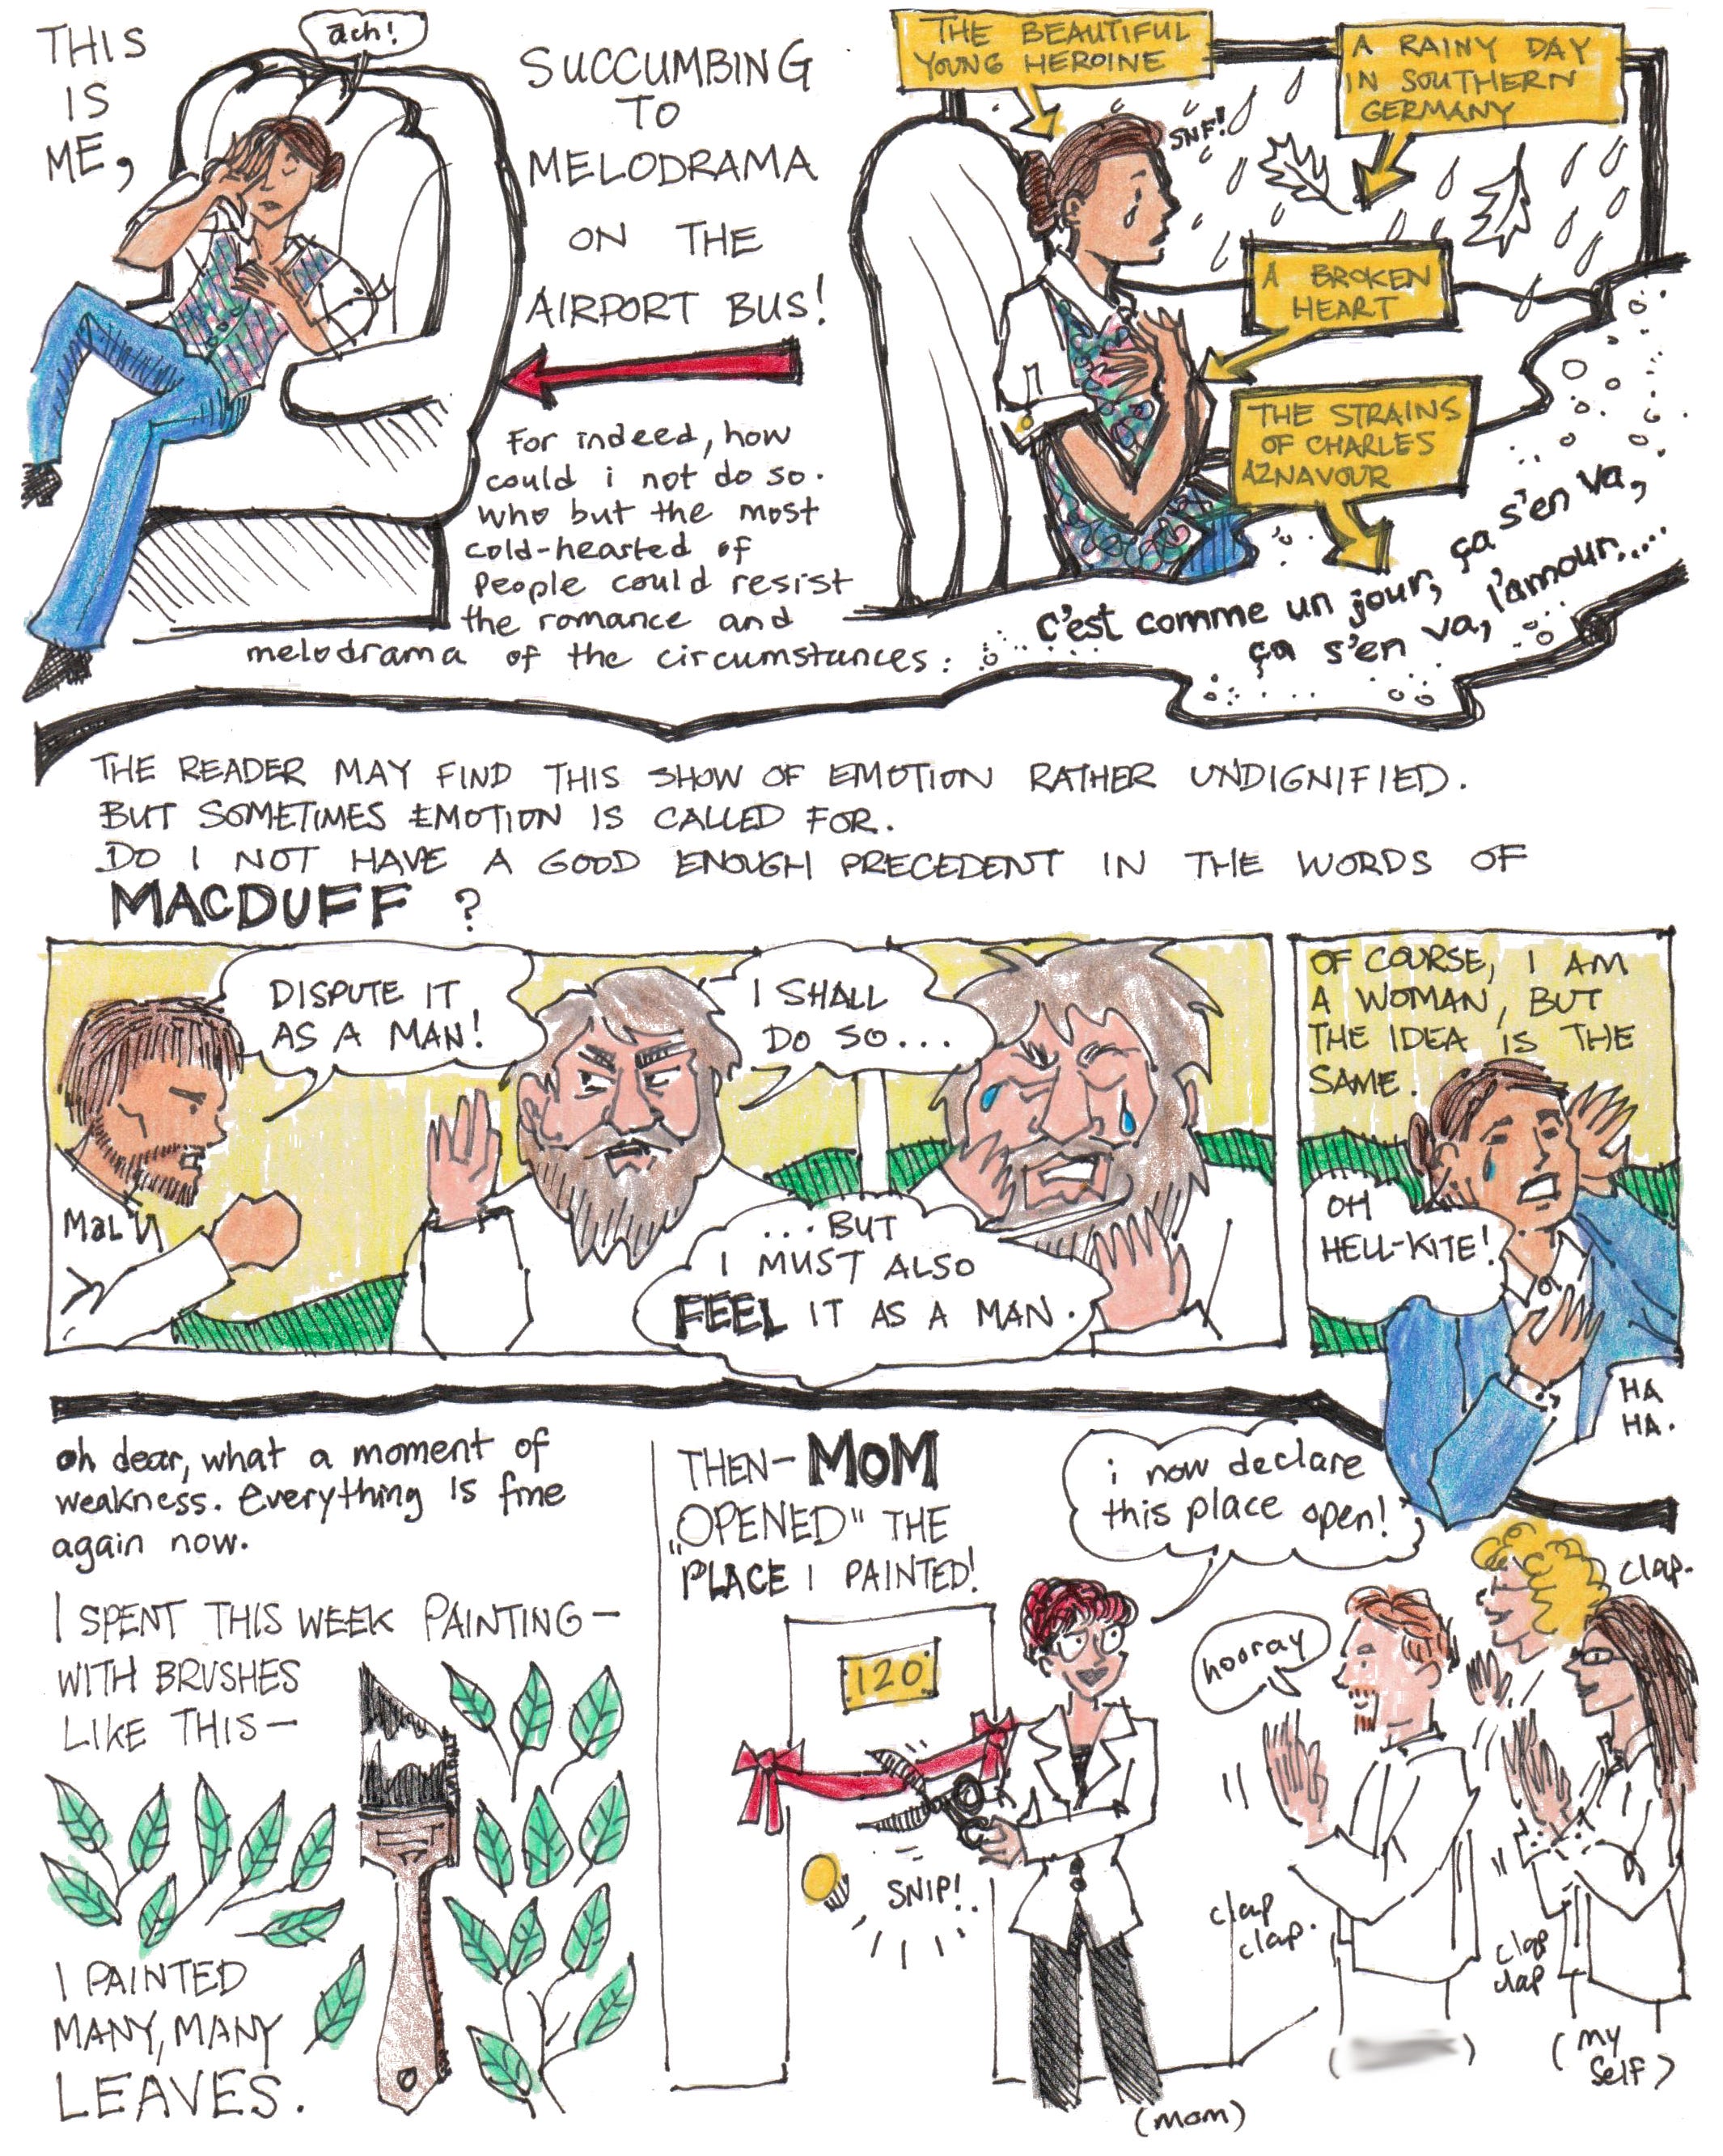 THIS
IS
ME,
ach!
SUCCUMBING
TO
MELODRAMA
ON THE
AIRPORT BUS!
For indeed, how
could i not do so.
Who but the most
cold-hearted of
people could resist
the romance and
melodrama of the circumstances:
THE BEAUTIFUL
YOUNG HEROINE
A RAINY DAY
IN SOUTHERN
GERMANY
SNF!
A BROKEN
HEART
THE STRAINS
OF CHARLES
AZNAVOUR
c'est comme un jour, ça s'en va,
ça s'en va, l'amour.....
THE READER MAY FIND THIS SHOW OF EMOTION RATHER UNDIGNIFIED.
BUT SOMETIMES EMOTION IS CALLED FOR.
DO I NOT HAVE A GOOD ENOUGH PRECEDENT IN THE WORDS OF
MACDUFF?
DISPUTE IT
AS A MAN!
MAL'N
I SHALL
DO SO...
...BUT
I MUST ALSO
FEEL IT AS A MAN.
OF COURSE, I AM
A WOMAN, BUT
THE IDEA IS THE
SAME.
OH
HELL-KITE!
HA
HA.
oh dear, what a moment of
weakness. everything is fine
again now.
I SPENT THIS WEEK PAINTING—
WITH BRUSHES
LIKE THIS—
I PAINTED
MANY, MANY
LEAVES.
THEN— MOM
„OPENED" THE
PLACE I PAINTED!
i now declare
this place open!
120
SNIP!
hooray
clap.
clap
clap.
clap
clap
(mom)
(my
self)